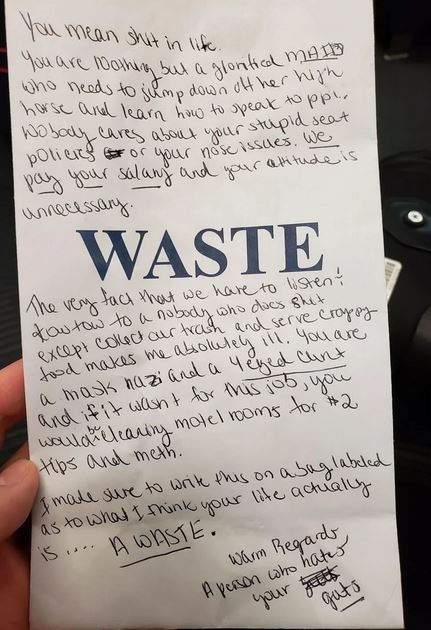 You mean shit in life.
You are nothing but a glorified MAID
who needs to jump down off her high
horse and learn how to speak to ppl.
Nobody cares about your stupid seat
policies or your nose issues. We
pay your salary and your attitude is
unnecessary.
WASTE
The very fact that we have to listen &
kowtow to a nobody who does shit
except collect our trash and serve crappy
food makes me absolutely ill. You are
a mask nazi and a 4 eyed cunt
and if it wasn't for this job, you
would be cleaning motel rooms for #2
tips and meth.
I made sure to write this on a bag labeled
as to what I think your life actually
is .... A WASTE.
Warm Regards
A person who hates
your guts